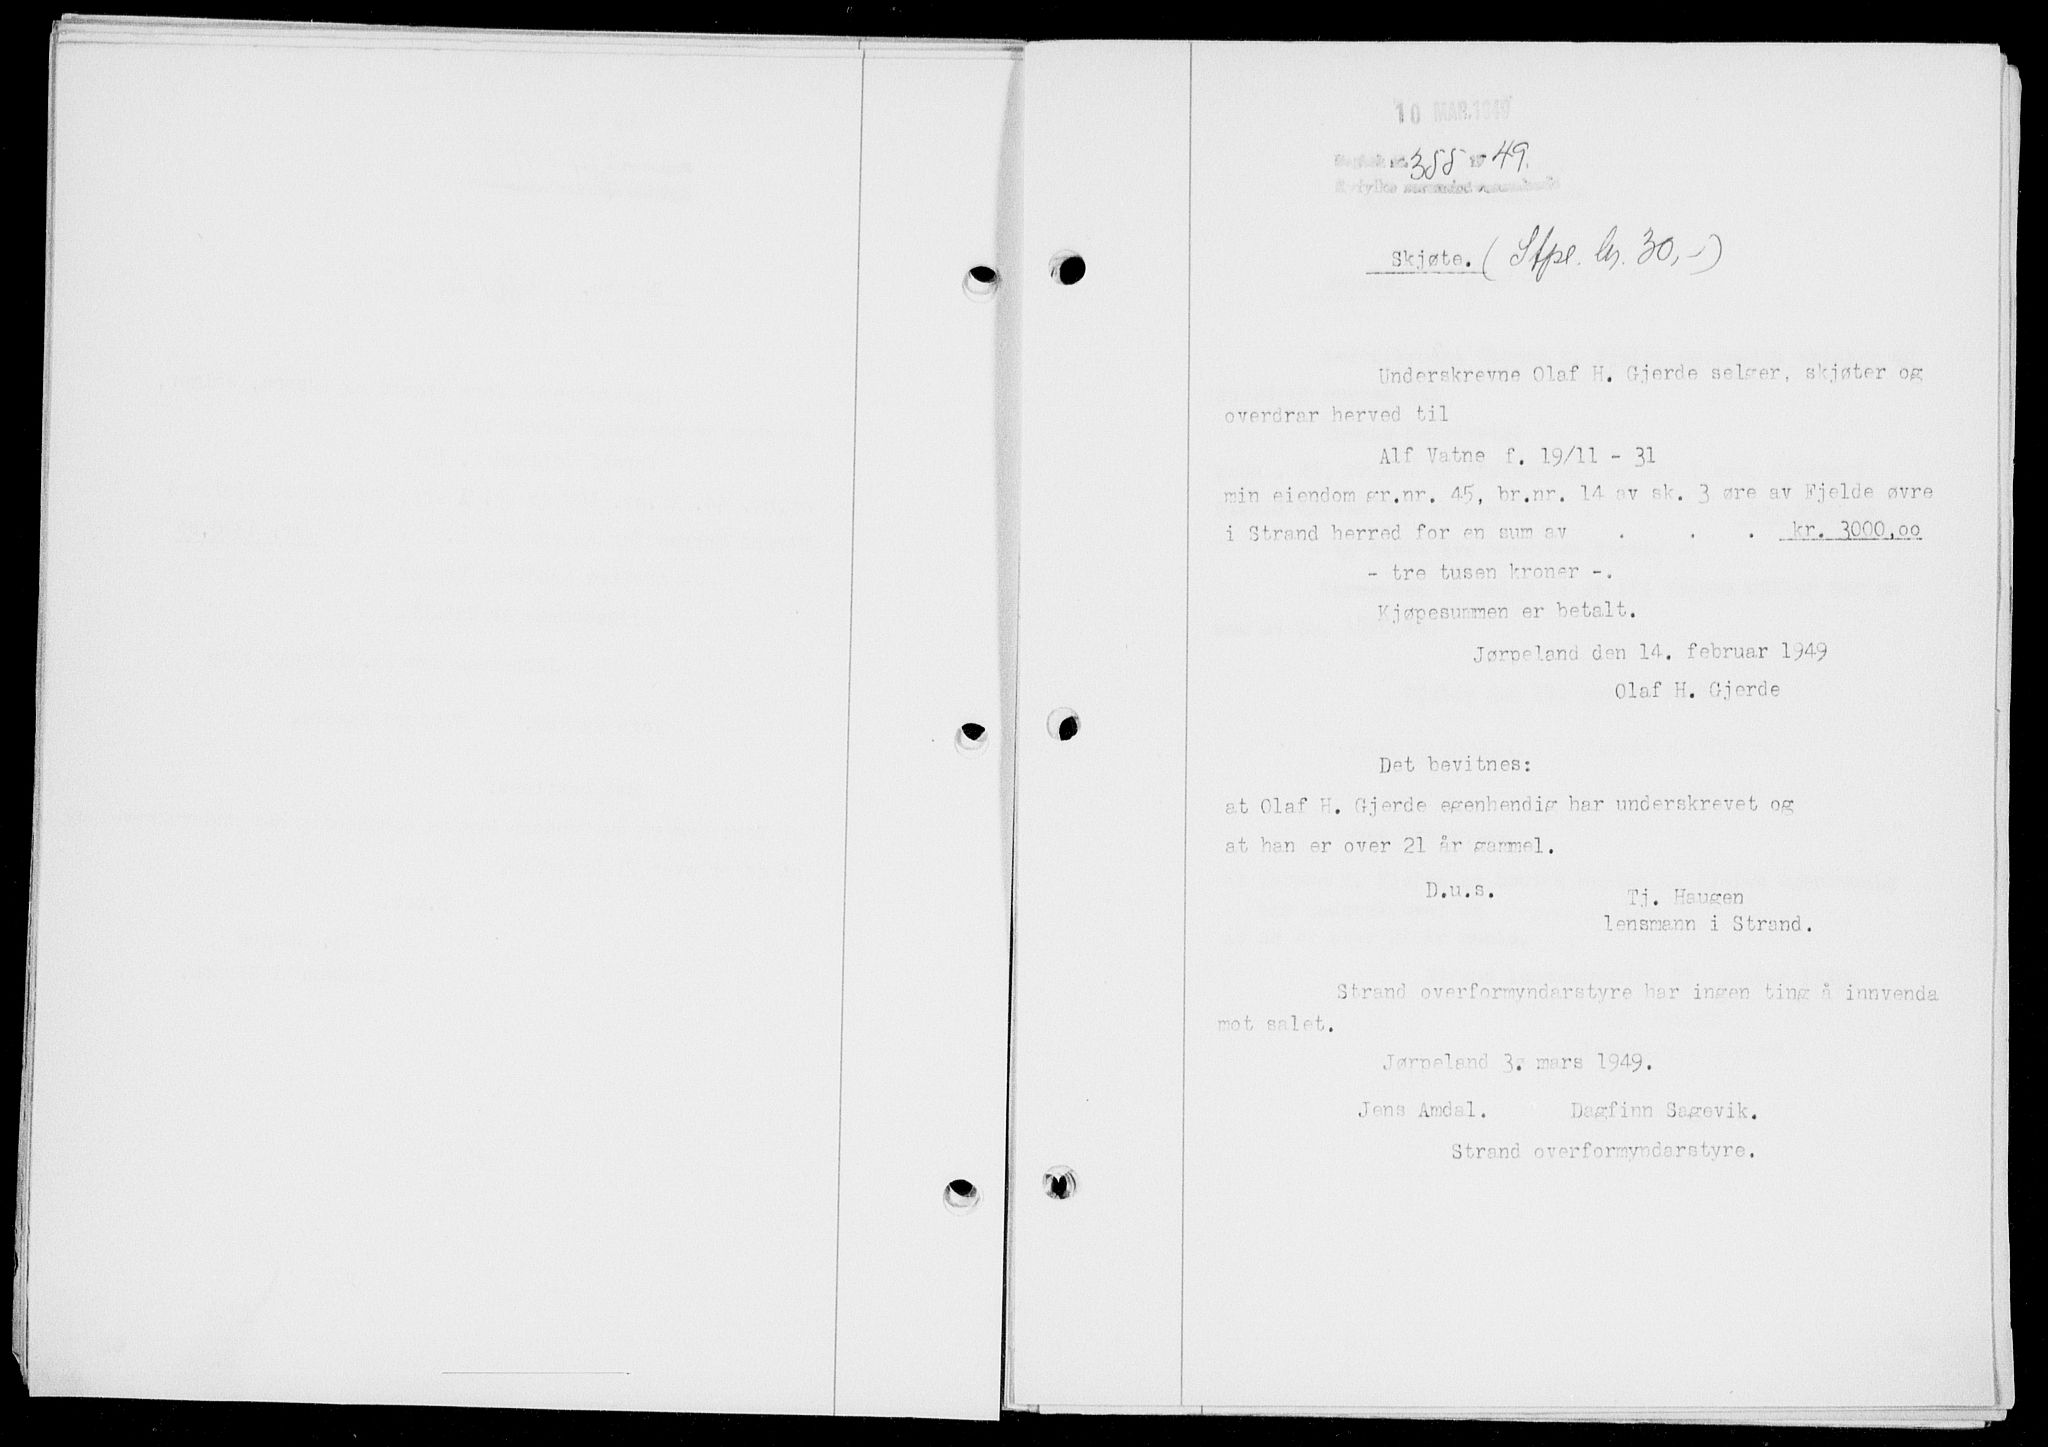 10 MAR.1949
Dagbok nr. 355 19 49.
Skjøte. (Stpl. kr. 30,-)
Underskrevne Olaf H. Gjerde selger, skjøter og
overdrar herved til
Alf Vatne f. 19/11 - 31
min eiendom gr.nr. 45, br.nr. 14 av sk. 3 øre av Fjelde øvre
i Strand herred for en sum av . . . kr. 3000,oo
- tre tusen kroner -.
Kjøpesummen er betalt.
Jørpeland den 14. februar 1949
Olaf H. Gjerde
Det bevitnes:
at Olaf H. Gjerde egenhendig har underskrevet og
at han er over 21 år gammel.
D.u.s. Tj. Haugen
lensmann i Strand.
Strand overformyndarstyre har ingen ting å innvenda
mot salet.
Jørpeland 3. mars 1949.
Jens Amdal. Dagfinn Sagevik.
Strand overformyndarstyre.